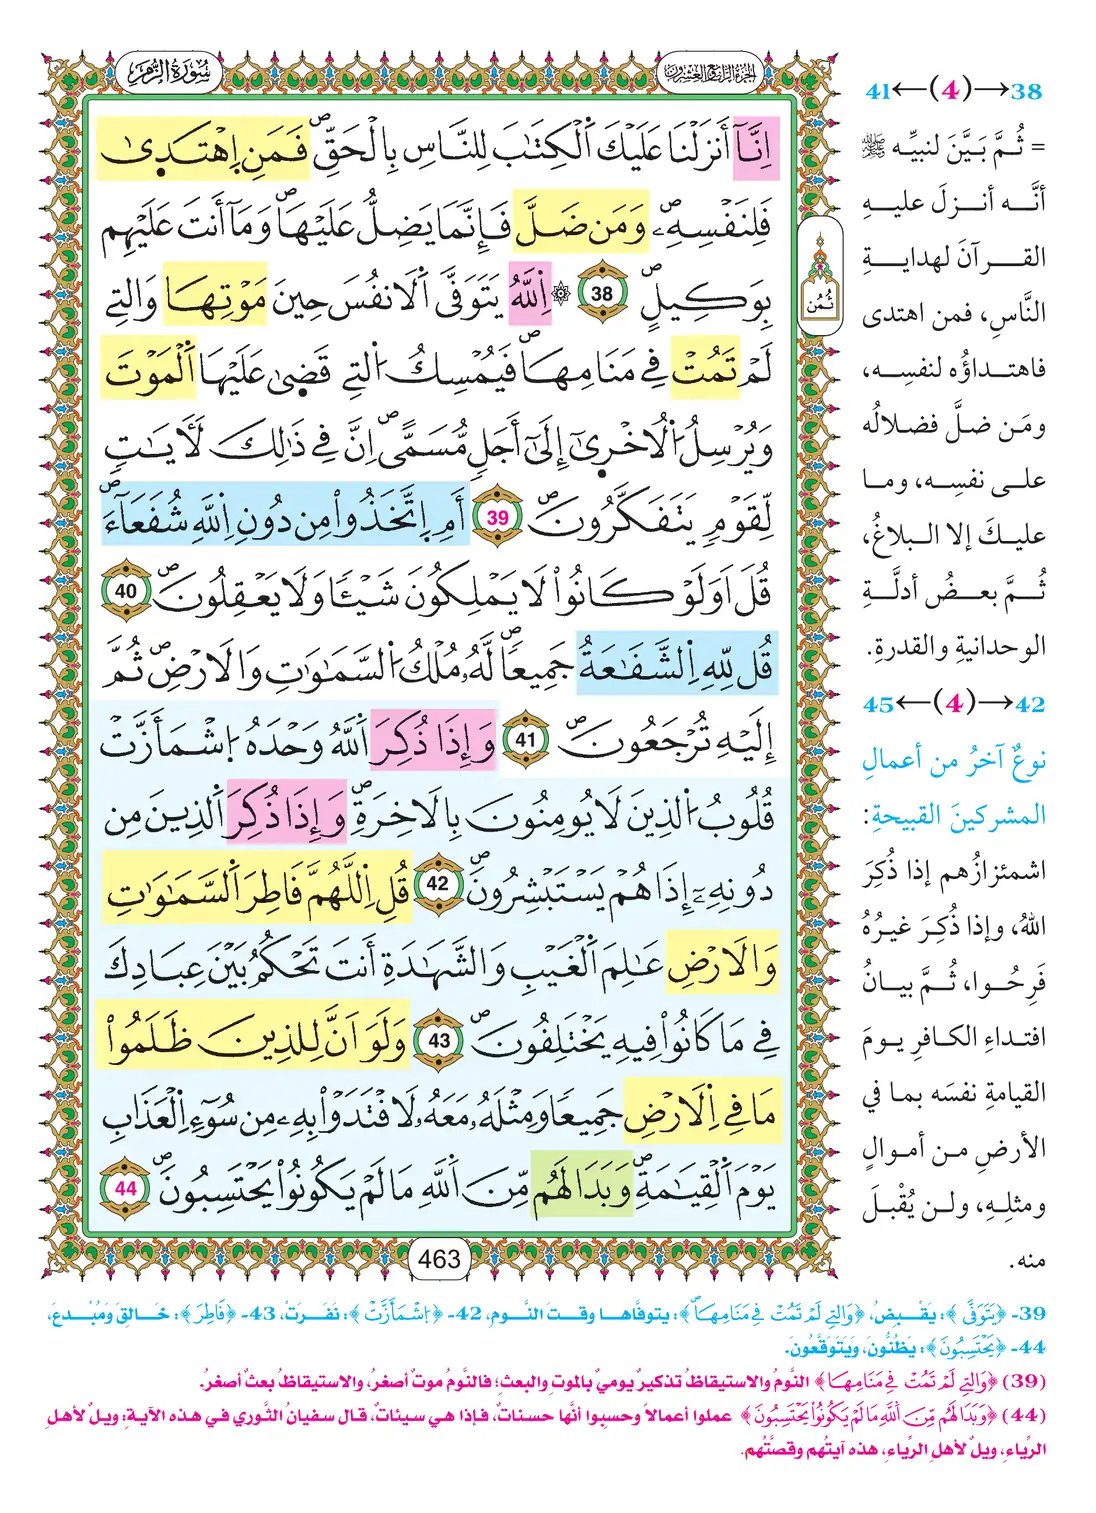 سُورَةُ الزُّمَرِ
الجزء الرابع والعشرون
إِنَّآ أَنزَلْنَا عَلَيْكَ اَ۬لْكِتَٰبَ لِلنَّاسِ بِالْحَقِّۖ فَمَنِ اِ۪هْتَد۪ىٰ
فَلِنَفْسِهِۦۖ وَمَن ضَلَّ فَإِنَّمَا يَضِلُّ عَلَيْهَاۖ وَمَآ أَنتَ عَلَيْهِم
بِوَكِيلٍۖ 38 ۞ اِ۬للَّهُ يَتَوَفَّى اَ۬لَانفُسَ حِينَ مَوْتِهَا وَالتِے
ثُمُن
لَمْ تَمُتْ فِے مَنَامِهَاۖ فَيُمْسِكُ اُ۬لتِے قَض۪ىٰ عَلَيْهَا اَ۬لْمَوْتَ
وَيُرْسِلُ اُ۬لُاخْر۪ىٰٓ إِلَىٰٓ أَجَلٖ مُّسَمّيًۖ اِنَّ فِے ذَٰلِكَ لَأٓيَٰتٖ
لِّقَوْمٖ يَتَفَكَّرُونَۖ 39 أَمِ اِ۪تَّخَذُواْ مِن دُونِ اِ۬للَّهِ شُفَعَآءَۖ
قُلَ اَوَلَوْ كَانُواْ لَا يَمْلِكُونَ شَيْـٔاٗ وَلَا يَعْقِلُونَۖ 40
قُل لِّلهِ اِ۬لشَّفَٰعَةُ جَمِيعاٗۖ لَّهُۥ مُلْكُ اُ۬لسَّمَٰوَٰتِ وَالَارْضِۖ ثُمَّ
إِلَيْهِ تُرْجَعُونَۖ 41 وَإِذَا ذُكِرَ اَ۬للَّهُ وَحْدَهُ اُ۪شْمَأَزَّتْ
قُلُوبُ اُ۬لذِينَ لَا يُومِنُونَ بِالَاخِرَةِۖ وَإِذَا ذُكِرَ اَ۬لذِينَ مِن
دُونِهِۦٓ إِذَا هُمْ يَسْتَبْشِرُونَۖ 42 قُلِ اِ۬للَّهُمَّ فَاطِرَ اَ۬لسَّمَٰوَٰتِ
وَالَارْضِ عَٰلِمَ اَ۬لْغَيْبِ وَالشَّهَٰدَةِ أَنتَ تَحْكُمُ بَيْنَ عِبَادِكَ
فِے مَا كَانُواْ فِيهِ يَخْتَلِفُونَۖ 43 وَلَوَ اَنَّ لِلذِينَ ظَلَمُواْ
مَا فِے اِ۬لَارْضِ جَمِيعاٗ وَمِثْلَهُۥ مَعَهُۥ لَافْتَدَوْاْ بِهِۦ مِن سُوٓءِ اِ۬لْعَذَابِ
يَوْمَ اَ۬لْقِيَٰمَةِۖ وَبَدَا لَهُم مِّنَ اَ۬للَّهِ مَا لَمْ يَكُونُواْ يَحْتَسِبُونَۖ 44
463
41←(4)→38
= ثُمَّ بَيَّنَ لنبيِّه ﷺ
أنَّه أنزلَ عليهِ
القرآنَ لهدايةِ
النَّاسِ، فمن اهتدى
فاهتداؤُه لنفسِه،
ومَن ضلَّ فضلالُه
على نفسِه، وما
عليكَ إلا البلاغُ،
ثُمَّ بعضُ أدلَّةِ
الوحدانيةِ والقدرةِ.
45←(4)→42
نوعٌ آخرُ من أعمالِ
المشركينَ القبيحةِ:
اشمئزازُهم إذا ذُكِرَ
اللهُ، وإذا ذُكِرَ غيرُهُ
فَرِحُوا، ثُمَّ بيانُ
افتداءِ الكافرِ يومَ
القيامةِ نفسَه بما في
الأرضِ من أموالٍ
ومثلِهِ، ولن يُقْبلَ
منه.
39- ﴿يَتَوَفَّى﴾: يَقْبِضُ، ﴿وَالتِے لَمْ تَمُتْ فِے مَنَامِهَاۖ﴾: يتوفَّاها وقتَ النَّومِ، 42- ﴿اُ۪شْمَأَزَّتْ﴾: نفَرَتْ، 43- ﴿فَاطِرَ﴾: خالقَ ومُبْدعَ،
44- ﴿يَحْتَسِبُونَ﴾: يَظُنُّونَ، وَيَتَوَقَّعُونَ.
(39) ﴿وَالتِے لَمْ تَمُتْ فِے مَنَامِهَا﴾ النَّومُ والاستيقاظُ تذكيرٌ يوميٌ بالموتِ والبعثِ؛ فالنَّومُ موتٌ أصغرُ، والاستيقاظُ بعثٌ أصغرُ.
(44) ﴿وَبَدَا لَهُم مِّنَ اَ۬للَّهِ مَا لَمْ يَكُونُواْ يَحْتَسِبُونَ﴾ عملوا أعمالاً وحسِبوا أنَّها حسناتٌ، فإذا هي سيئاتٌ، قال سفيانُ الثَّوري في هذه الآيةِ: ويلٌ لأهلِ
الرِّياءِ، ويلٌ لأهلِ الرِّياءِ، هذه آيتُهم وقصَّتُهم.